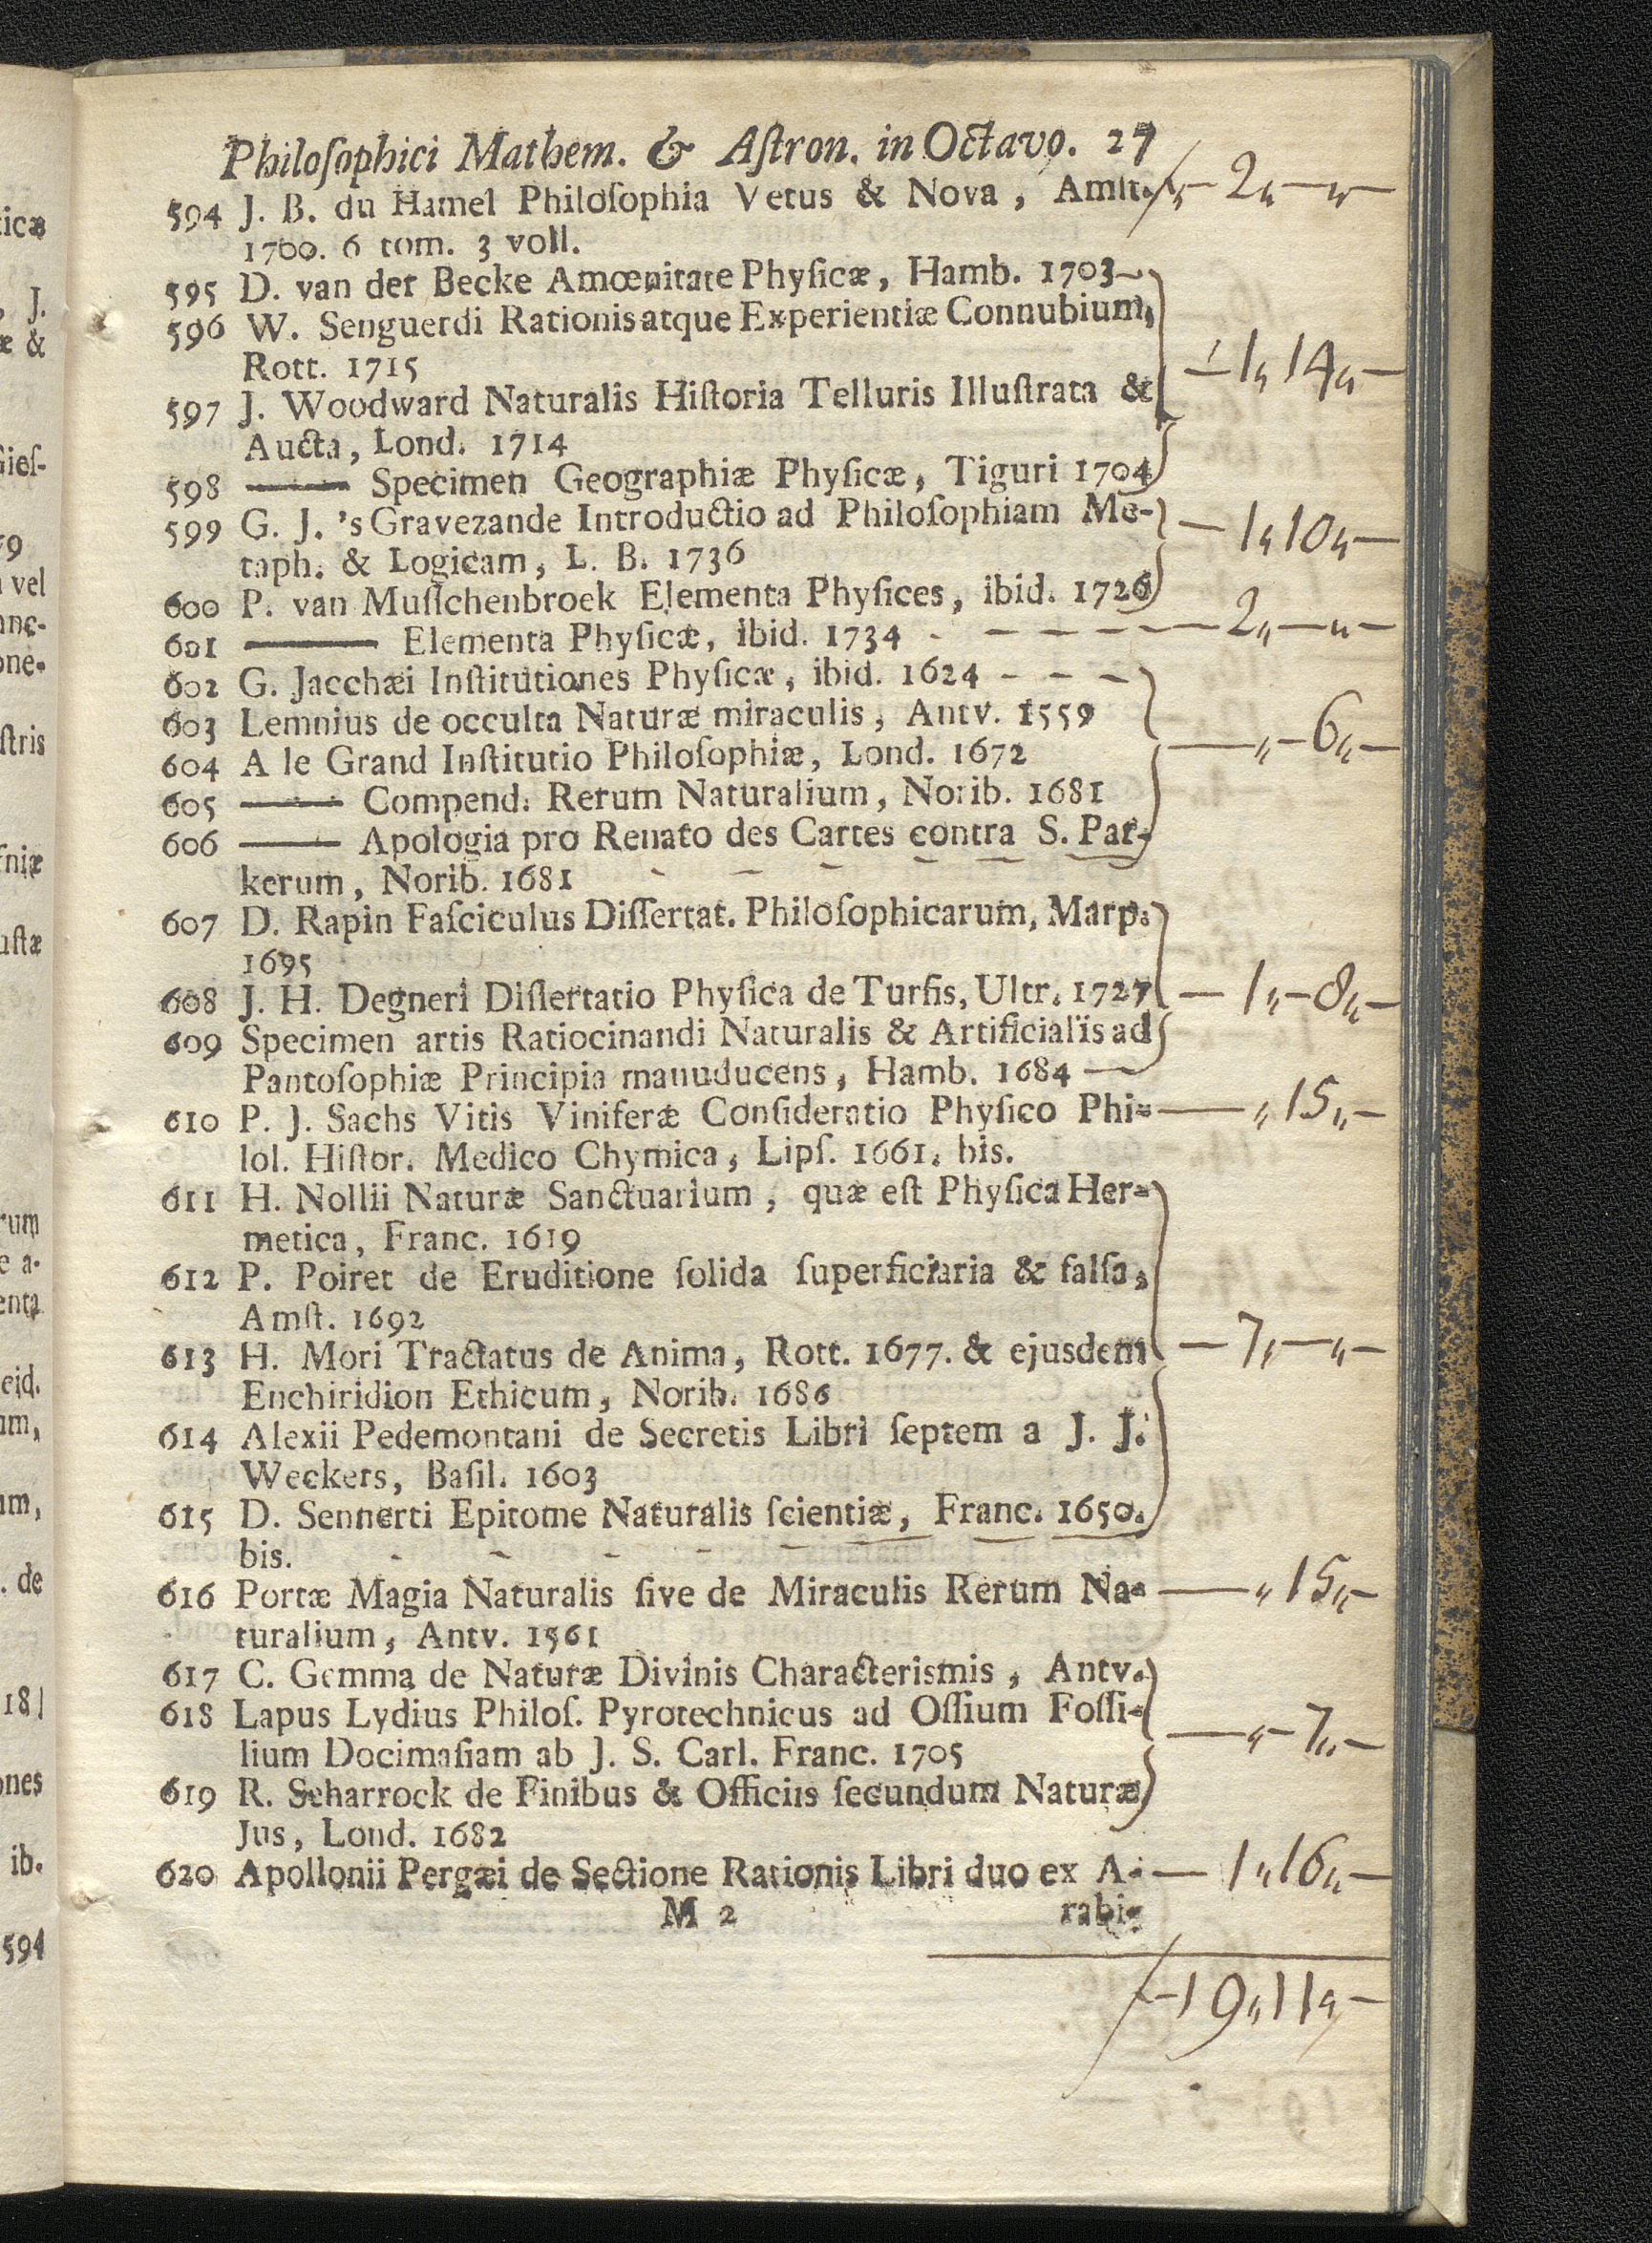 Philoſophici Mathem. & Aſtron. in Octavo. 27
594 J. B. du Hamel Philoſophia Vetus & Nova, Amſt. — 2„—„—
1700. 6 tom. 3 voll.
595 D. van der Becke Amœnitate Phyſicæ, Hamb. 1703
596 W. Senguerdi Rationis atque Experientiæ Connubium,
Rott. 1715 — 1„14„—
597 J. Woodward Naturalis Hiſtoria Telluris Illuſtrata &
Aucta, Lond. 1714
598 ——— Specimen Geographiæ Phyſicæ, Tiguri 1704
599 G. J. 's Gravezande Introductio ad Philoſophiam Me- — 1„10„—
taph. & Logicam, L. B. 1736
600 P. van Muſſchenbroek Elementa Phyſices, ibid. 1726
601 ——— Elementa Phyſicæ, ibid. 1734 - — — — — — 2„—„—
602 G. Jacchæi Inſtitutiones Phyſicæ, ibid. 1624 - - -
603 Lemnius de occulta Naturæ miraculis, Antv. 1559
604 A le Grand Inſtitutio Philoſophiæ, Lond. 1672 —„—6„—
605 ——— Compend. Rerum Naturalium, Norib. 1681
606 ——— Apologia pro Renato des Cartes contra S. Par-
kerum, Norib. 1681
607 D. Rapin Faſciculus Diſſertat. Philoſophicarum, Marp.
1695
608 J. H. Degneri Diſſertatio Phyſica de Turfis, Ultr. 1727 — 1„—8„—
609 Specimen artis Ratiocinandi Naturalis & Artificialis ad
Pantoſophiæ Principia manuducens, Hamb. 1684 —
610 P. J. Sachs Vitis Viniferæ Conſideratio Phyſico Phi- —„15„—
lol. Hiſtor. Medico Chymica, Lipſ. 1661. bis.
611 H. Nollii Naturæ Sanctuarium, quæ eſt Phyſica Her-
metica, Franc. 1619
612 P. Poiret de Eruditione ſolida ſuperficiaria & falſa,
Amſt. 1692
613 H. Mori Tractatus de Anima, Rott. 1677. & ejusdem — 7„—„—
Enchiridion Ethicum, Norib. 1686
614 Alexii Pedemontani de Secretis Libri ſeptem a J. J.
Weckers, Baſil. 1603
615 D. Sennerti Epitome Naturalis ſcientiæ, Franc. 1650.
bis.
616 Portæ Magia Naturalis ſive de Miraculis Rerum Na- —„15„—
turalium, Antv. 1561
617 C. Gemma de Naturæ Divinis Characteriſmis, Antv.
618 Lapus Lydius Philoſ. Pyrotechnicus ad Oſſium Foſſi- —„—7„—
lium Docimaſiam ab J. S. Carl. Franc. 1705
619 R. Scharrock de Finibus & Officiis ſecundum Naturæ
Jus, Lond. 1682
620 Apollonii Pergæi de Sectione Rationis Libri duo ex A- — 1„16„—
M 2 rabi-
—19„11„—